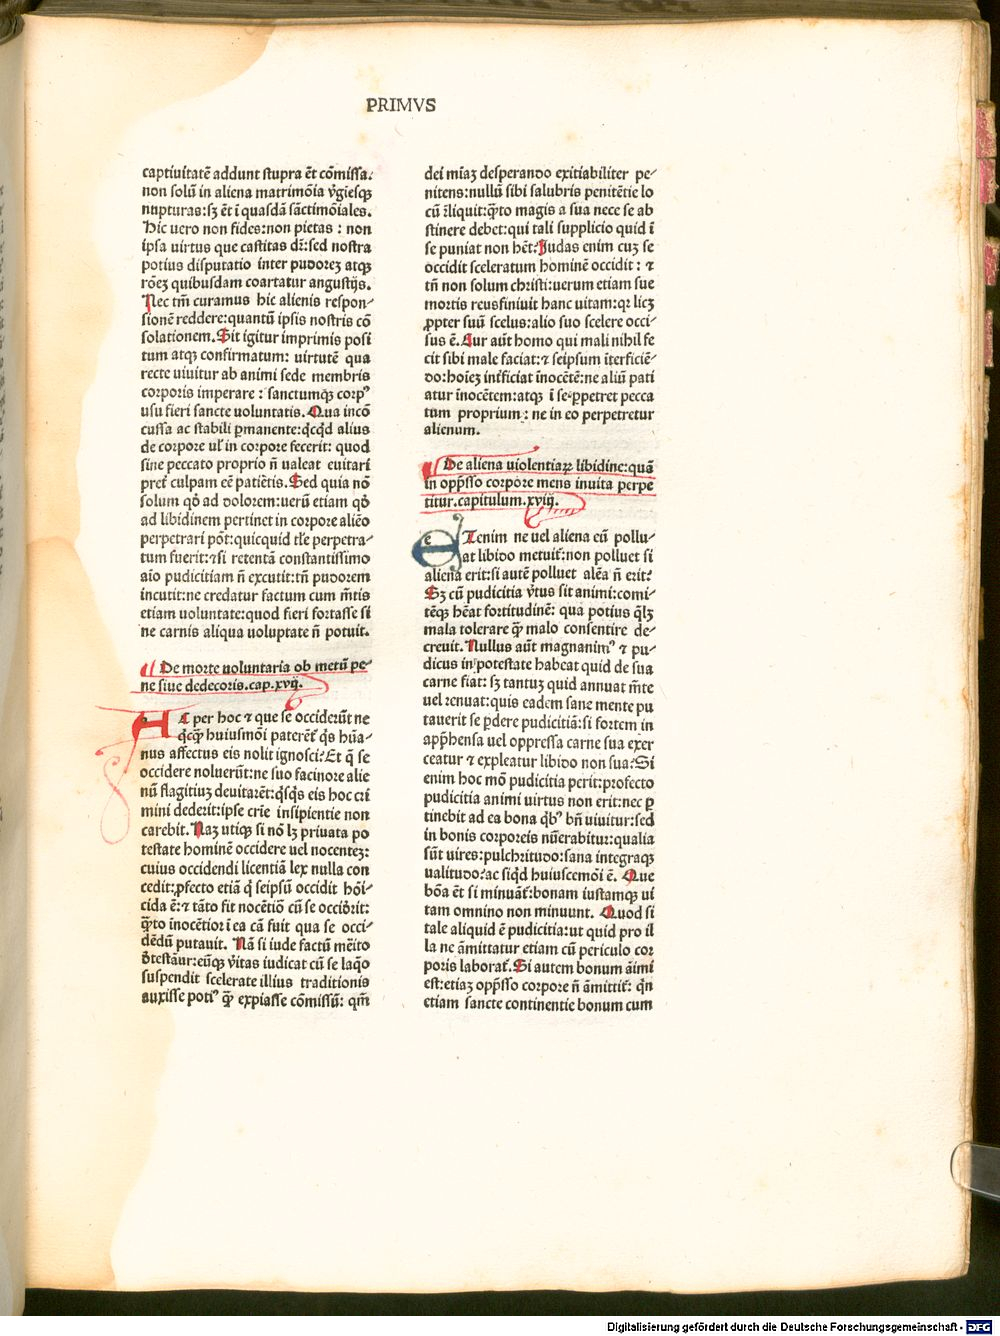 PRIMVS
captiuitatē addunt stupra ēt cōmissa:
non solū in aliena matrimōia ṽgīesqꝫ
nupturas:sꝫ ēt ī quasdā sāctimōiales.
Hic uero non fides:non pietas : non
ipsa uirtus que castitas dr̄:sed nostra
potius disputatio inter pudoreꝫ atqꝫ
rōeꝫ quibusdam coartatur angustijs.
Nec tm̄ curamus hic alienis respon-
sionē reddere:quantū ipsis nostris cō
solationem. Sit igitur imprimis posi
tum atqꝫ confirmatum: uirtutē qua
recte uiuitur ab animi sede membris
corporis imperare : sanctumqꝫ corpꝰ
usu fieri sancte uoluntatis. Qua incō
cussa ac stabili ꝑmanente:qͥcqͥd alius
de corpore ul' in corpore fecerit: quod
sine peccato proprio n̄ ualeat euitari
pret̄ culpam eē patiētis. Sed quia nō
solum qđ ad dolorem:uerū etiam qđ
ad libidinem pertinet in corpore aliēo
perpetrari pōt:quicquid tl̄e perpetra-
tum fuerit:⁊si retentā constantissimo
aīo pudicitiam n̄ excutit:tn̄ pudorem
incutit:ne credatur factum cum m̄tis
etiam uoluntate:quod fieri fortasse si
ne carnis aliqua uoluptate n̄ potuit.
De morte uoluntaria ob metū pe-
ne siue dedecoris.cap.xvij.
AC per hoc ⁊ que se occiderūt ne
qͥcqͣ huiusmōi paterēt̄ qͥs hūa-
nus affectus eis nolit ignosci? Et q̄ se
occidere noluerūt:ne suo facinore alie
nū flagitiuꝫ deuitarēt:qͥsqͥs eis hoc cri
mini dederit:ipse crīe insipientie non
carebit. Naꝫ utiqꝫ si nō lꝫ priuata po
testate hominē occidere uel nocenteꝫ:
cuius occidendi licentiā lex nulla con
cedit:ꝓfecto etiā q̄ seipsū occidit hōi-
cida ē:⁊ tāto fit nocētiō cū se occiđrit:
qͣto īnocētior ī ea cā fuit qua se occi-
dēdū putauit. Nā si iude factū mēito
đtestāur:eūqꝫ ṽitas iudicat cū se laqͦo
suspendit scelerate illius traditionis
auxisse potiꝰ qͣ expiasse cōmissū: qm̄
dei mīaꝫ desperando exitiabiliter pe-
nitens:nullū sibi salubris penitētie lo
cū ꝛ̄liquit:qͣto magis a sua nece se ab
stinere debet:qui tali supplicio quid ī
se puniat non hēt? Judas enim cuꝫ se
occidit sceleratum hominē occidit : ⁊
tn̄ non solum christi:uerum etiam sue
mortis reus finiuit hanc uitam:qꝛ licꝫ
ꝓpter suū scelus:alio suo scelere occi-
sus ē. Cur aūt homo qui mali nihil fe
cit sibi male faciat:⁊ seipsum īterficiē-
do:hoīeꝫ int̄ficiat īnocētē:ne aliū pati
atur īnocētem:atqꝫ ī se ꝑpetret pecca
tum proprium : ne in eo perpetretur
alienum.
De aliena uiolentiaꝝ libidine:quā
in opp̄sso corpore mens inuita perpe
titur.capitulum.xviij.
ETenim ne uel aliena eū pollu-
at libido metuit̄:non polluet si
aliena erit:si autē polluet alēa n̄ erit?
Sꝫ cū pudicitia ṽtus sit animi:comi-
tēqꝫ hēat fortitudinē: qua potius qͥlꝫ
mala tolerare qͣ malo consentire de-
creuit. Nullus aūt magnanimꝰ ⁊ pu-
dicus in potestate habeat quid de sua
carne fiat: sꝫ tantuꝫ quid annuat m̄te
uel renuat:quis eadem sane mente pu
tauerit se ꝑdere pudicitiā:si fortem in
app̄hensa uel oppressa carne sua exer
ceatur ⁊ expleatur libido non sua? Si
enim hoc mō pudicitia perit:profecto
pudicitia animi uirtus non erit:nec ꝑ
tinebit ad ea bona qͥbꝰ bn̄ uiuitur:sed
in bonis corporeis nūerabitur:qualia
sūt uires:pulchritudo:sana integraqꝫ
ualitudo:ac siqͥd huiuscemōi ē. Que
bōa ēt si minuāt̄:bonam iustamqꝫ ui
tam omnino non minuunt. Quod si
tale aliquid ē pudicitia:ut quid pro il
la ne āmittatur etiam cū periculo cor
poris laborat̄. Si autem bonum āimi
est:etiaꝫ opp̄sso corpore n̄ āmittit̄: qͥn
etiam sancte continentie bonum cum
Digitalisierung gefördert durch die Deutsche Forschungsgemeinschaft - DFG